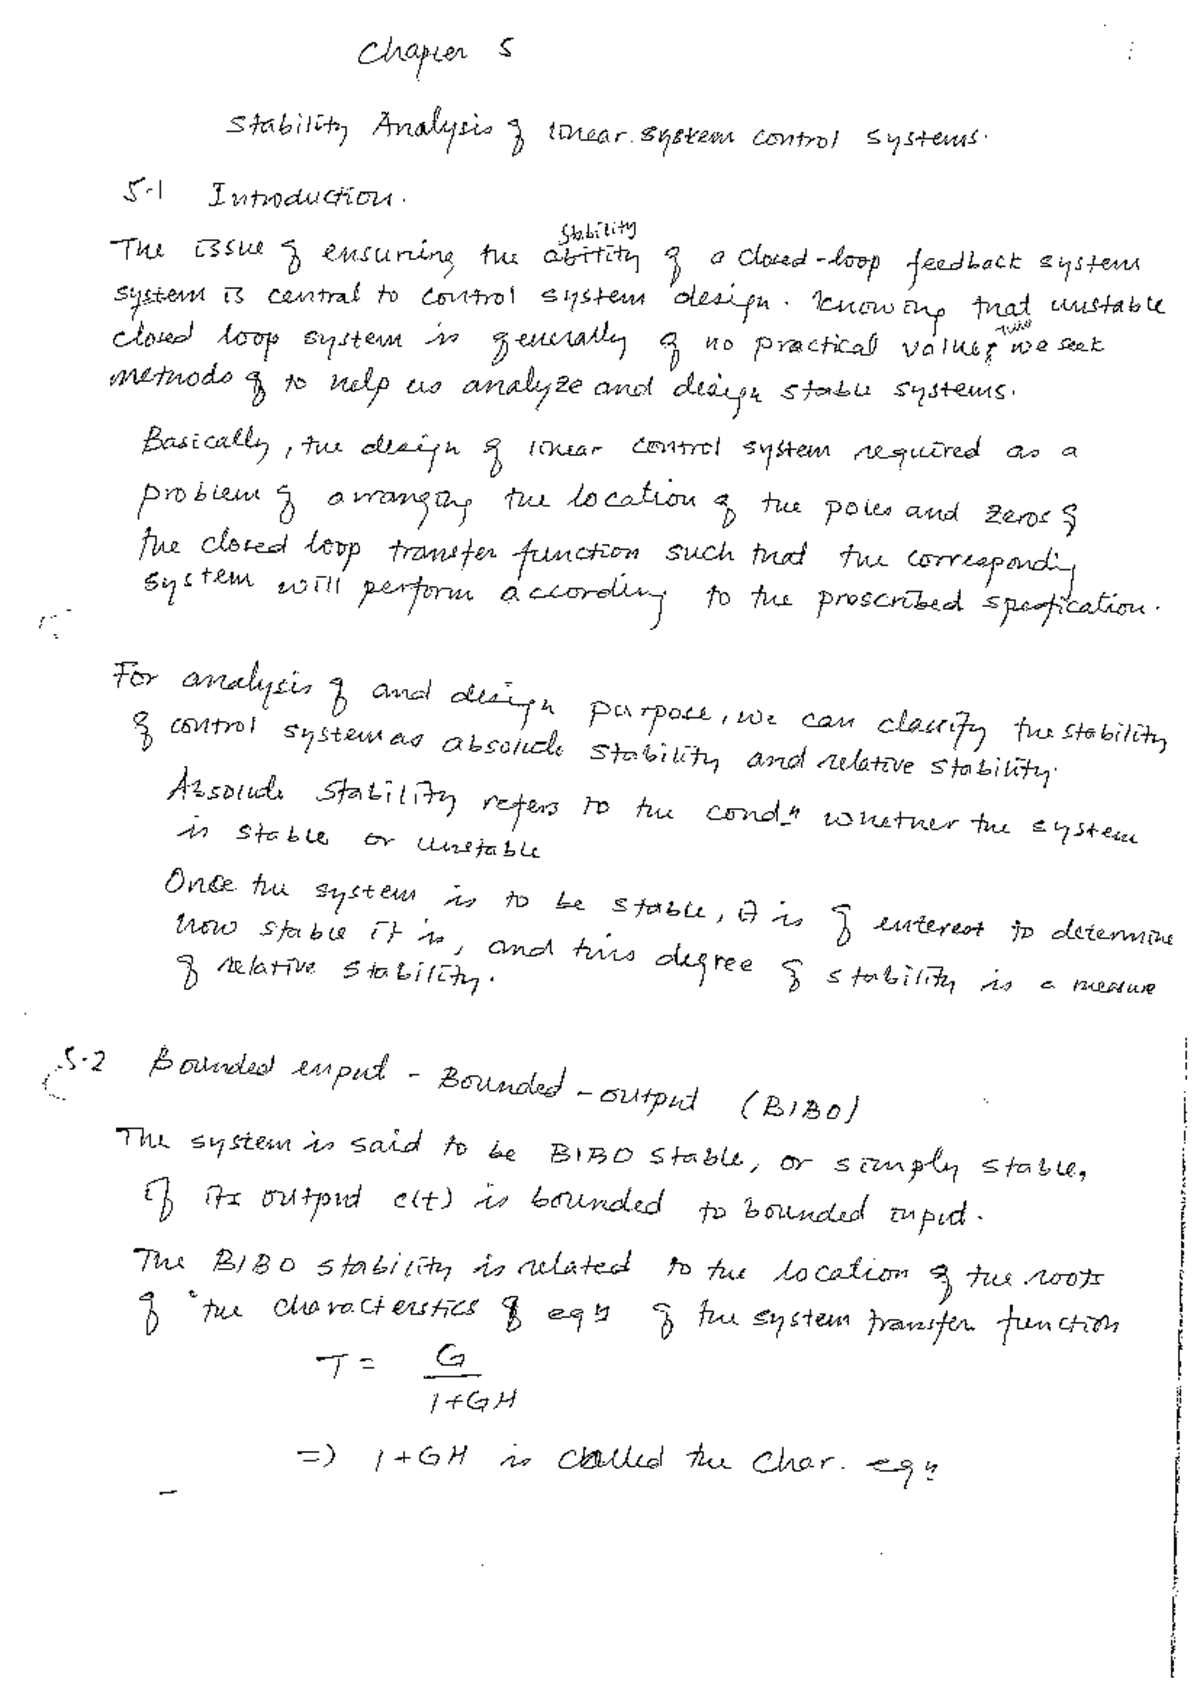 Chapter 5
Stability Analysis of linear system control systems.
5.1 Introduction.
Stability
The issue of ensuring the abitity of a closed-loop feedback system
system is central to control system design. Knowing that unstable
closed loop system is generally of no practical value, we seek
methods of to help us analyze and design stable systems.
Basically, the design of linear control system required as a
problem of arranging the location of the poles and zeros of
the closed loop transfer function such that the corresponding
system will perform according to the proscribed spefication.
For analysis of and design purpose, we can classify the stability
of control system as absolute stability and relative stability.
Absolute stability refers to the condn whether the system
is stable or unstable
Once the system is to be stable, it is of enterest to determine
how stable it is, and this degree of stability is a measure
of relative stability.
5.2 Bounded enput - Bounded - output (BIBO)
The system is said to be BIBO stable, or simply stable,
if its output c(t) is bounded to bounded input.
The BIBO stability is related to the location of the roots
of the characterstics of eqn of the system transfer function
T = G
1+GH
=> 1+GH is called the char. eqn